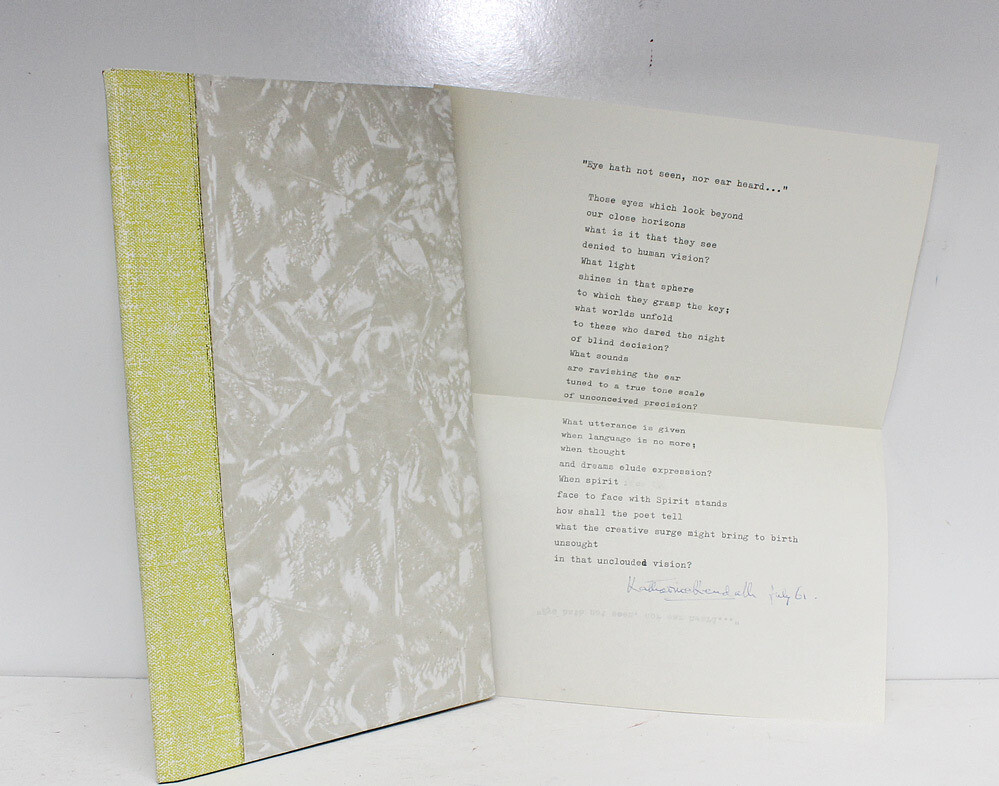 "Eye hath not seen, nor ear heard..."
Those eyes which look beyond
our close horizons
what is it that they see
denied to human vision?
What light
shines in that sphere
to which they grasp the key;
what worlds unfold
to these who dared the night
of blind decision?
What sounds
are ravishing the ear
tuned to a true tone scale
of unconceived precision?
What utterance is given
when language is no more;
when thought
and dreams elude expression?
When spirit
face to face with Spirit stands
how shall the poet tell
what the creative surge might bring to birth
unsought
in that unclouded vision?
Katharine Kendall July 61.